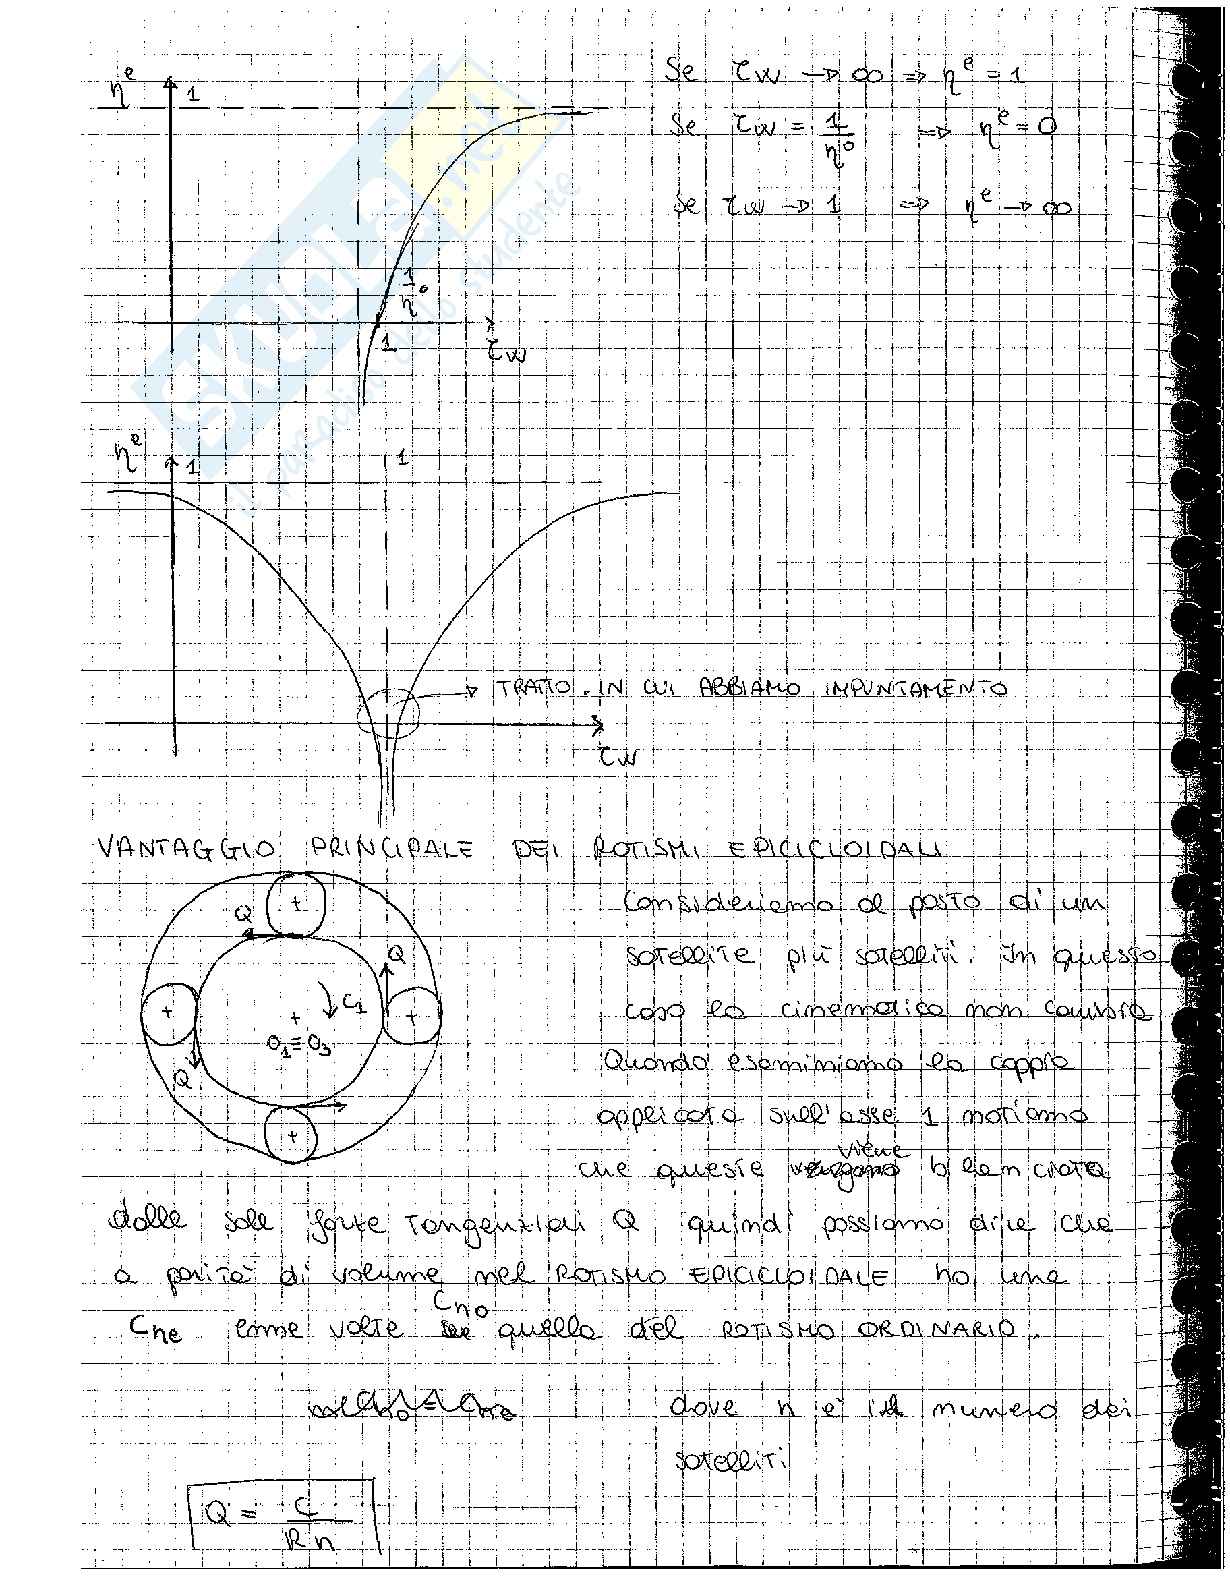 ηᵉ
1
Se τw → ∞ ⇒ ηᵉ = 1
Se τw = 1/η⁰ ⇒ ηᵉ = 0
Se τw → 1 ⇒ ηᵉ → ∞
1/η⁰
1
τw
SKUOLA.net
il paradiso dello studente
ηᵉ
1
1
TRATTO IN CUI ABBIAMO IMPUNTAMENTO
τw
VANTAGGIO PRINCIPALE DEI ROTISMI EPICICLOIDALI
Q
Q
C₁
O₁≡O₃
Q
Consideriamo al posto di un
satellite più satelliti. In questo
caso la cinematica non cambia
Quando esaminiamo la coppia
applicata sull'asse 1 notiamo
che queste viene bilanciata
dalle sole forze tangenziali Q quindi possiamo dire che
a parità di volume nel ROTISMO EPICICLOIDALE ho una
Cne enne volte Cno quella del ROTISMO ORDINARIO.
dove n è il numero dei
satelliti
Q = C/Rn